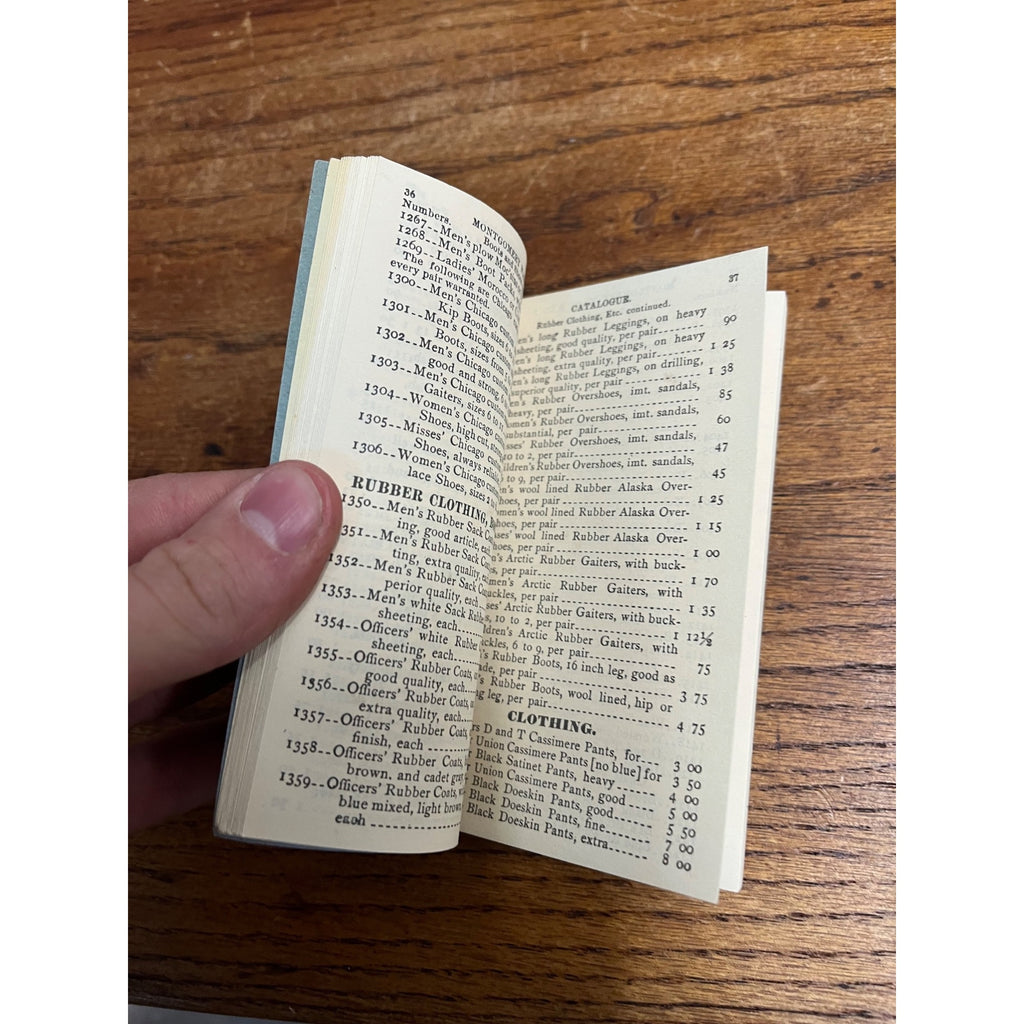 36
MONTGOMERY
Numbers.
Boots
1267--Men's plow
1268--Men's Boot Packs,
1269--Ladies' Morocco
The following are Chicago
every pair warranted.
1300--Men's Chicago
Kip Boots, sizes 6
1301--Men's Chicago custom
Boots, sizes from
1302--Men's Chicago custom
good and strong, 6
1303--Men's Chicago custom
Gaiters, sizes 6 to 11
1304--Women's Chicago
Shoes, high cut,
1305--Misses' Chicago
Shoes, always
1306--Women's Chicago
lace Shoes, sizes 2
RUBBER CLOTHING,
1350--Men's Rubber Sack
ing, good article,
1351--Men's Rubber Sack
ting, extra quality,
1352--Men's Rubber Sack
perior quality, each
1353--Men's white Sack
sheeting, each
1354--Officers' white Rubber
sheeting, each
1355--Officers' Rubber Coats,
good quality, each
1356--Officers' Rubber Coats,
extra quality, each
1357--Officers' Rubber Coats,
finish, each
1358--Officers' Rubber Coats,
brown, and cadet
1359--Officers' Rubber Coats,
blue mixed, light brown
each
37
CATALOGUE.
Rubber Clothing, Etc. continued.
long Rubber Leggings, on heavy
sheeting, good quality, per pair 90
long Rubber Leggings, on heavy
sheeting, extra quality, per pair 1 25
long Rubber Leggings, on drilling,
superior quality, per pair 1 38
Rubber Overshoes, imt. sandals,
heavy, per pair 85
Rubber Overshoes, imt. sandals,
substantial, per pair 60
Rubber Overshoes, imt. sandals,
10 to 2, per pair 47
Rubber Overshoes, imt. sandals,
to 9, per pair 45
wool lined Rubber Alaska Over-
per pair 1 25
wool lined Rubber Alaska Over-
per pair 1 15
wool lined Rubber Alaska Over-
per pair 1 00
Arctic Rubber Gaiters, with buck-
per pair 1 70
Arctic Rubber Gaiters, with
per pair 1 35
Arctic Rubber Gaiters, with buck-
10 to 2, per pair 1 12½
Arctic Rubber Gaiters, with
6 to 9, per pair 75
Rubber Boots, 16 inch leg, good as
per pair 3 75
Rubber Boots, wool lined, hip or
leg, per pair 4 75
CLOTHING.
D and T Cassimere Pants, for 3 00
Union Cassimere Pants [no blue] for 3 50
Black Satinet Pants, heavy 4 00
Union Cassimere Pants, good 5 00
Black Doeskin Pants, good 5 50
Black Doeskin Pants, fine 7 00
Black Doeskin Pants, extra 8 00